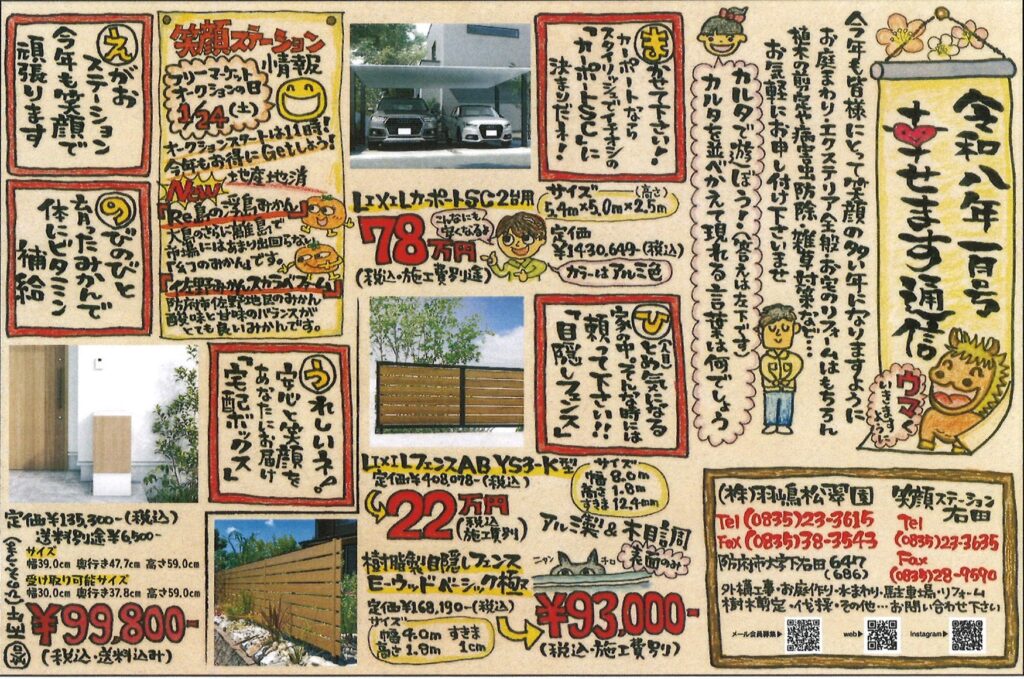 令和八年一月号
幸せます通信
ウマく
いきますように
今年も皆様にとって笑顔の多い年になりますように
お庭まわり・エクステリア全般・お宅のリフォームはもちろん
植木の剪定や病害虫防除、雑草対策など…
お気軽にお申し付け下さいませ
カルタで遊ぼう!(答えは左下です)
カルタを並べかえて現れる言葉は何でしょう
ま
かせて下さい!
カーポートなら
スタイリッシュでイチオシの
「カーポートSC」に
決まりだネ!
LIXILカーポートSC 2台用
78万円
(税込・施工費別途)
こんなにも
安くなるよ
サイズ (高さ)
5.4m×5.0m×2.5m
定価
¥1,430,649-(税込)
カラーはアルミ色
ひ
(人目)
とめ気になる
家の中。そんな時には
頼って下さい!!
「目隠しフェンス」
LIXILフェンスAB YS3-K型
定価¥408,078-(税込)
22万円
(税込
施工費別)
サイズ
幅 8.0m
高さ 1.8m
すきま 12.4mm
アルミ製&木目調
表面のみ
樹脂製目隠しフェンス
E-ウッドベーシック極
定価¥168,190-(税込)
サイズ
幅 4.0m すきま
高さ 1.8m 1cm
¥93,000-
(税込・施工費別)
笑顔ステーション
情報
フリーマーケット
オークションの日
1/24(土)
オークションスタートは11時!
今年もお得にGetしよう!
New
地産地消
え
がお
ステーション
今年も笑顔で
頑張ります
の
びのびと
育ったみかんで
体にビタミン
補給
う
れしいネ!
安心と笑顔を
あなたにお届け
「宅配ボックス」
定価¥135,300-(税込)
送料別途¥6,500-
サイズ
幅39.0cm 奥行き47.7cm 高さ59.0cm
受け取り可能サイズ
幅30.0cm 奥行き37.8cm 高さ59.0cm
¥99,800-
(税込・送料込み)
(株)羽嶋松翠園
Tel (0835)23-3615
Fax (0835)38-3543
笑顔ステーション
右田
Tel
(0835)23-3635
Fax
(0835)28-9590
防府市大字下右田647
(686)
外構工事・お庭作り・水まわり・駐車場・リフォーム
樹木剪定・伐採・その他…お問い合わせ下さい
メール会員募集▶
web▶
Instagram▶